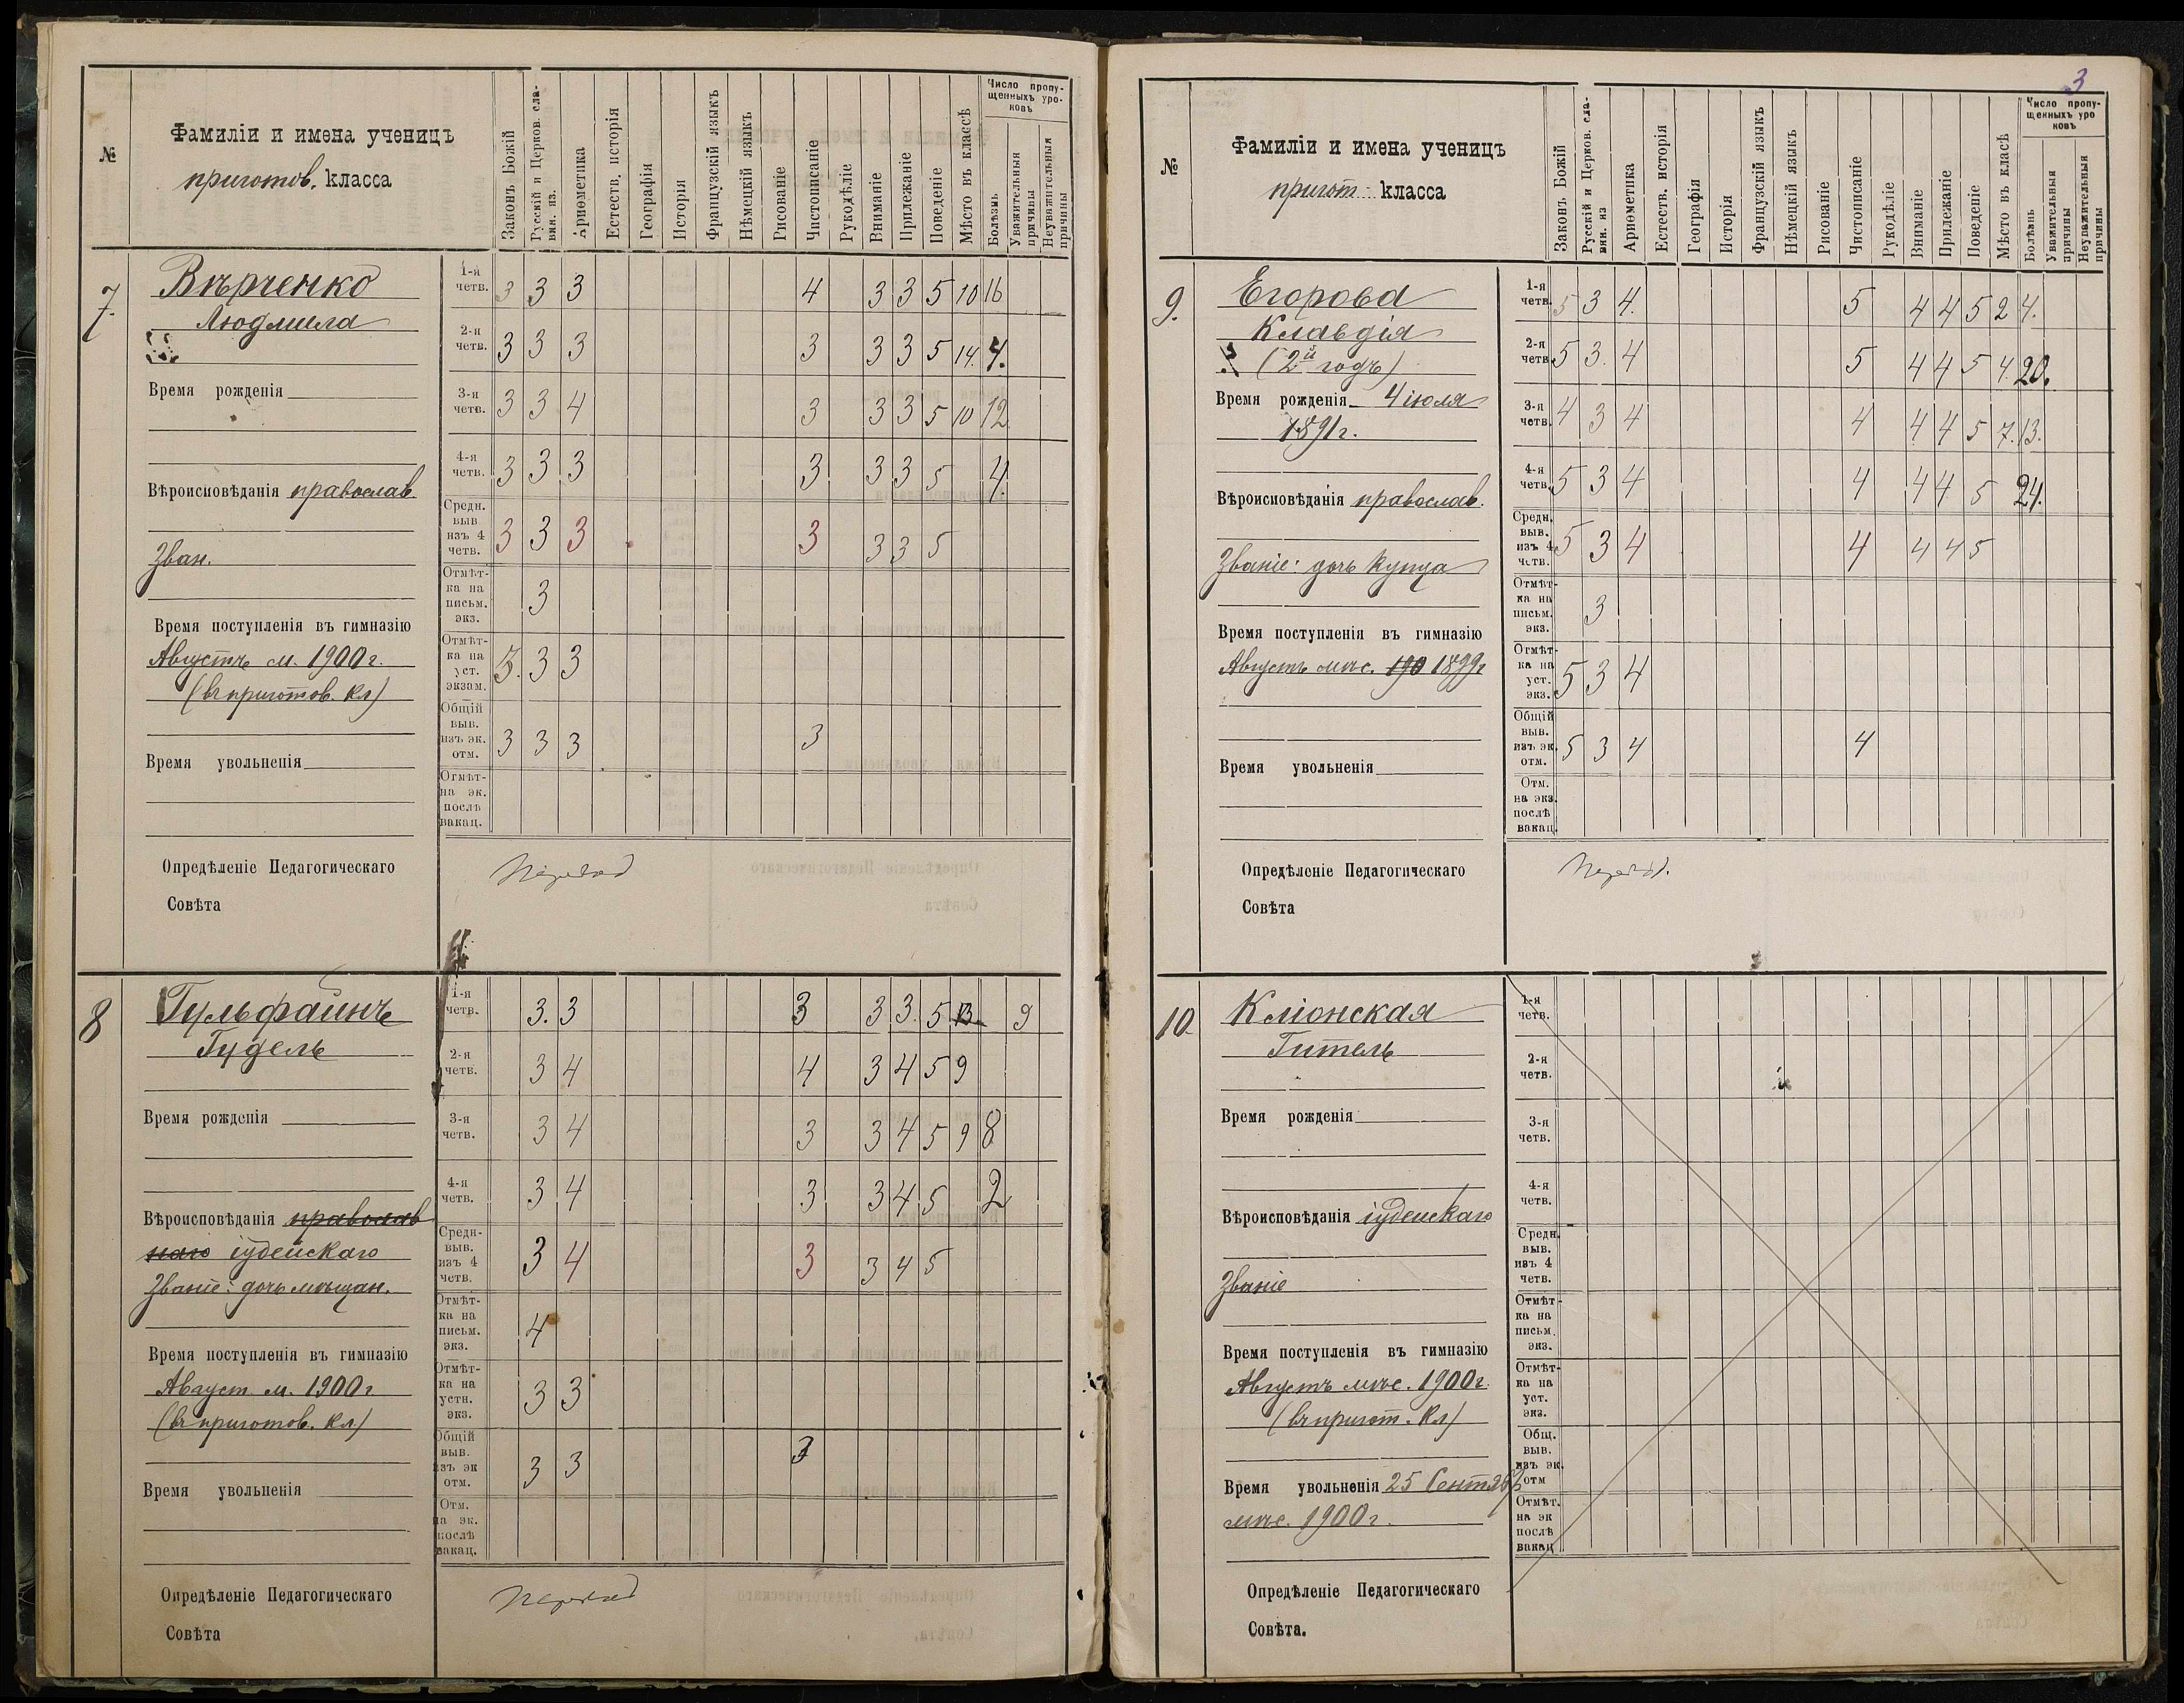 №
Фамиліи и имена ученицъ
приготов. класса
Законъ Божій
Русскій и Церков. сла-
вян. яз.
Ариѳметика
Естеств. исторія
Географія
Исторія
Французскій языкъ
Нѣмецкій языкъ
Рисованіе
Чистописаніе
Рукодѣліе
Вниманіе
Прилежаніе
Поведеніе
Мѣсто въ классѣ
Число пропу-
щенныхъ уро-
ковъ
Болѣзнь
Уважительныя
причины
Неуважительныя
причины
7.
Вѣрченко
Людмила
Время рожденія
Вѣроисповѣданія православ.
Зван.
Время поступленія въ гимназію
Августъ м. 1900 г.
(въ приготов. кл)
Время увольненія
1-я четв. 3 3 3 4 3 3 5 10 16
2-я четв. 3 3 3 3 3 3 5 14. 4.
3-я четв. 3 3 4 3 3 3 5 10 12
4-я четв. 3 3 3 3 3 3 5 4.
Средн. выв изъ 4 четв. 3 3 3 3 3 3 5
Отмѣт-ка на письм. экз. 3
Отмѣт-ка на уст. экзам. 3. 3 3
Общій выв. изъ эк. отм. 3 3 3 3
Отмѣт-на эк. послѣ вакац.
Опредѣленіе Педагогическаго
Совѣта
Перевод
8
Гульфаинъ
Гудель
Время рожденія
Вѣроисповѣданія православ
наго іудейскаго
Званіе: дочь мѣщан.
Время поступленія въ гимназію
Август. м. 1900 г
(въ приготов. кл)
Время увольненія
1-я четв. 3. 3 3 3 3. 5 13 9
2-я четв. 3 4 4 3 4 5 9
3-я четв. 3 4 3 3 4 5 9 8
4-я четв. 3 4 3 3 4 5 2
Средн-выв. изъ 4 четв. 3 4 3 3 4 5
Отмѣт-ка на письм. экз. 4
Отмѣт-ка на устн. экз. 3 3
Общій выв. изъ эк отм. 3 3 3
Отм. на эк. послѣ вакац.
Опредѣленіе Педагогическаго
Совѣта
Перевод
3
№
Фамиліи и имена ученицъ
пригот. класса
Законъ Божій
Русскій и Церков. сла-
вян. яз
Ариѳметика
Естеств. исторія
Географія
Исторія
Французскій языкъ
Нѣмецкій языкъ
Рисованіе
Чистописаніе
Рукодѣліе
Вниманіе
Прилежаніе
Поведеніе
Мѣсто въ класѣ
Число пропу-
щенныхъ уро
ковъ
Болѣзнь
Уважительныя
причины
Неуважительныя
причины
9.
Егорова
Клавдія
(2й годъ)
Время рожденія 4 іюля
1891 г.
Вѣроисповѣданія православ.
Званіе: дочь купца
Время поступленія въ гимназію
Августъ мѣс. 190 1899 г
Время увольненія
1-я четв. 5 3 4. 5 4 4 5 2 4.
2-я четв. 5 3. 4 5 4 4 5 4. 20.
3-я четв. 4 3 4 4 4 4 5 7. 13.
4-я четв. 5 3 4 4 4 4 5 24.
Средн. выв. изъ 4 четв. 5 3 4 4 4 4 5
Отмѣт-ка на письм. экз. 3
Отмѣт-ка на уст. экз. 5 3 4
Общій выв. изъ эк. отм. 5 3 4 4
Отм. на экз. послѣ вакац
Опредѣленіе Педагогическаго
Совѣта
Перевод.
10.
Кліонская
Гитель
Время рожденія
Вѣроисповѣданія іудейскаго
Званіе
Время поступленія въ гимназію
Августъ мѣс. 1900 г.
(въ пригот. кл)
Время увольненія 25 Сентяб
мѣс. 1900 г.
1-я четв.
2-я четв.
3-я четв.
4-я четв.
Средн. выв. изъ 4 четв.
Отмѣт-ка на письм. экз.
Отмѣт-ка на уст. экз.
Общ. выв. изъ эк. отм
Отмѣт. на эк послѣ вакац
Опредѣленіе Педагогическаго
Совѣта.